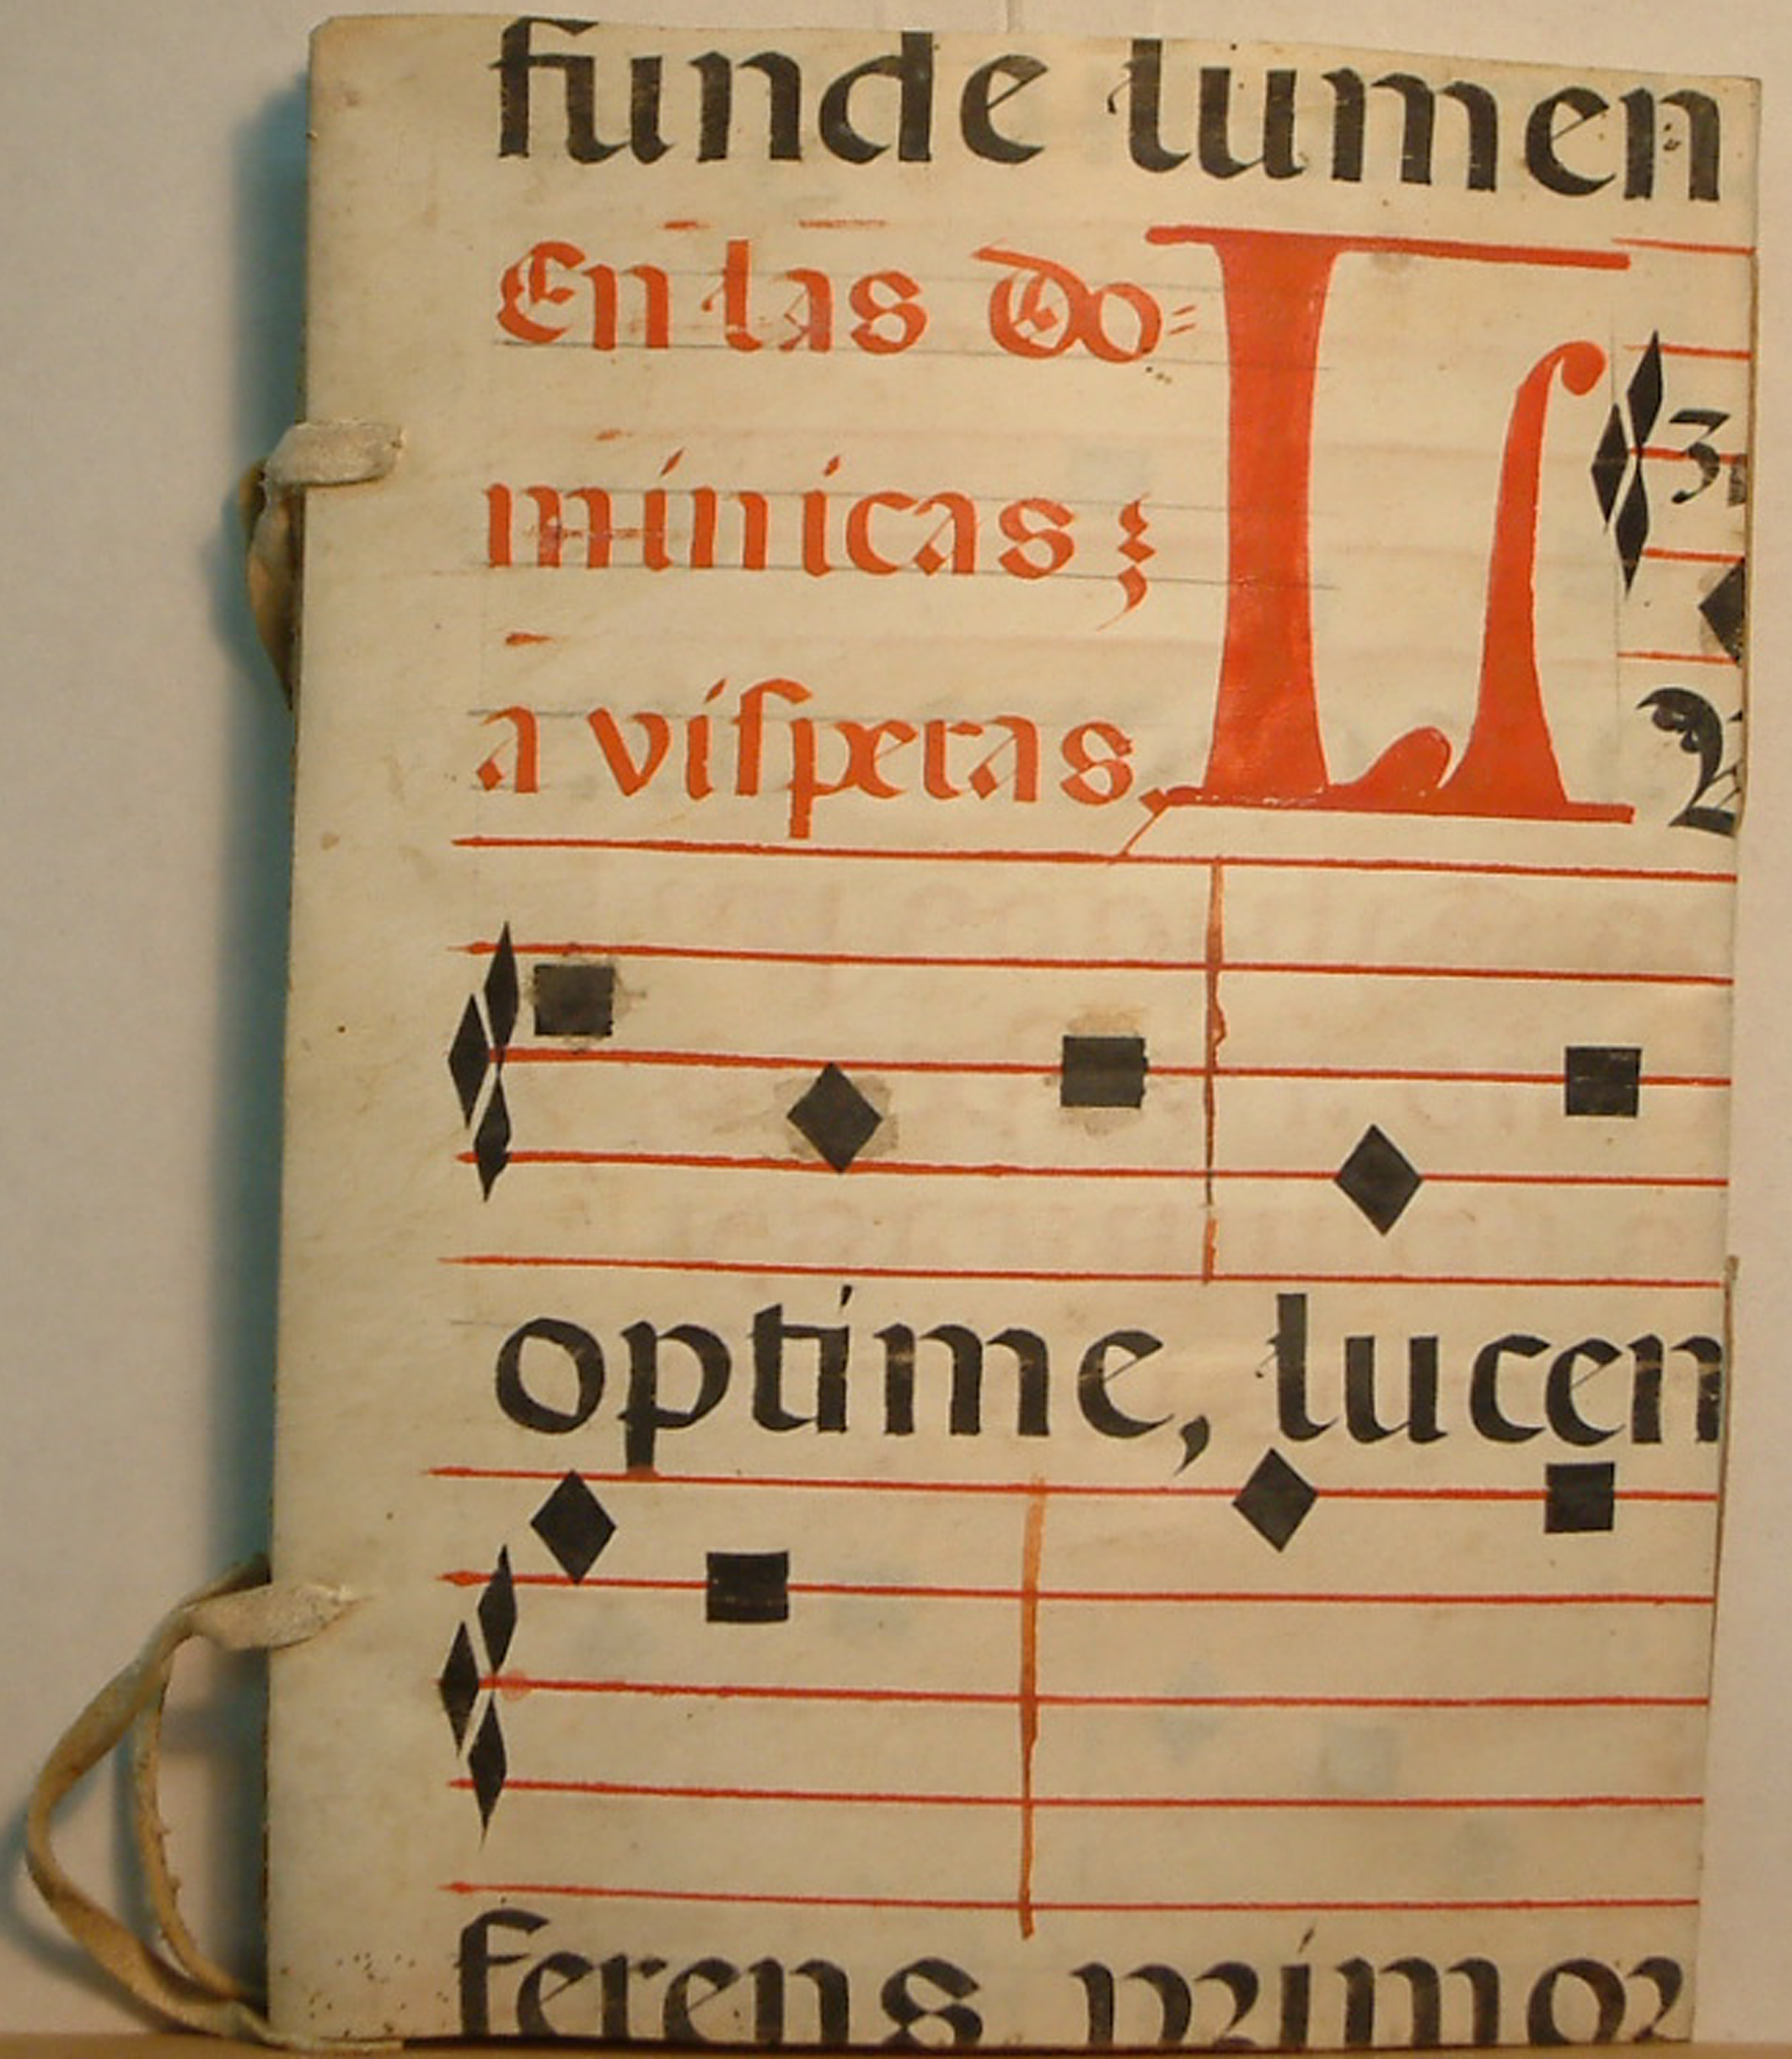 funde lumen
En las Do=
minicas;
a visperas,
L
3
V
optime, lucen
ferens primor